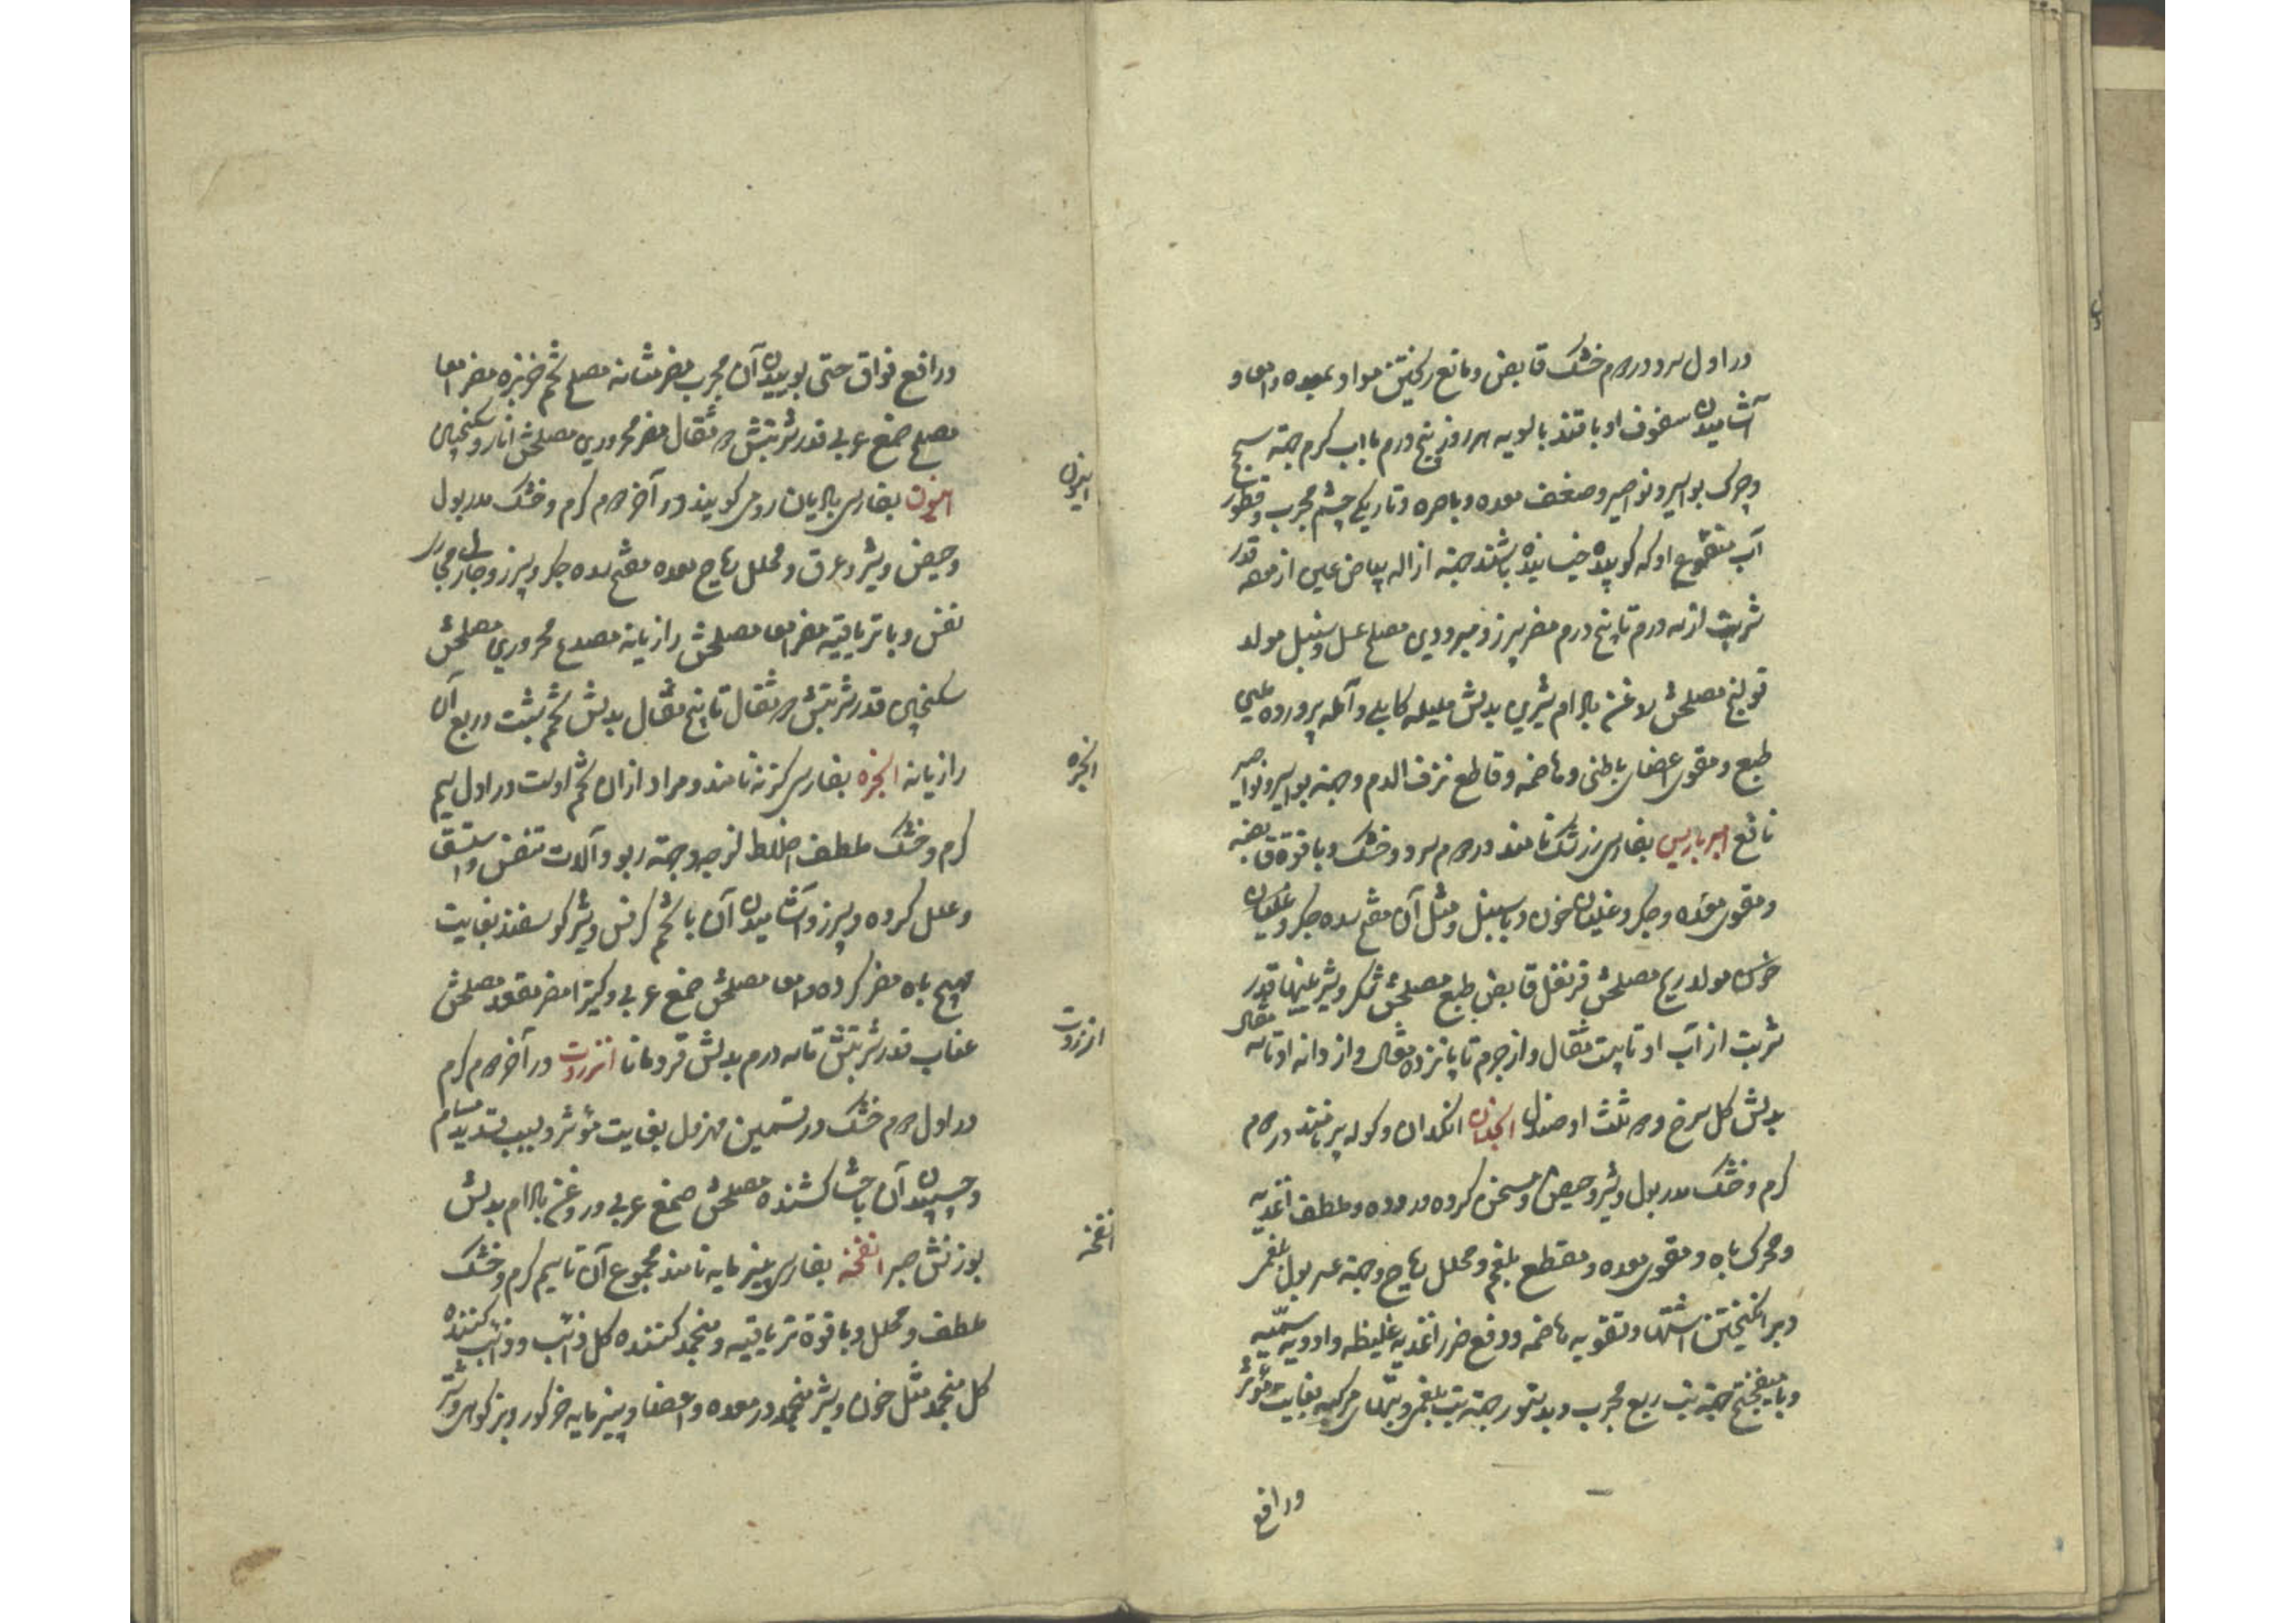 در اول سرد و در دوم خشک قابض و مانع ریختن مواد بمعده و امعا و
آشامیدن سفوف او با قند بالسویه هر روز پنج درم با آب گرم جهة سحج
و چرک بواسیر و نواصیر و ضعف معده و باصره و تاریکی چشم مجرب و قطور
آب منقوع او که کوبیده خیسانیده باشند جهة ازاله بیاض عین از مهه قدر
شربت از سه درم تا پنج درم مضر سپرز و مبرودین مصلح عسل و سنبل مولد
قولنج مصلحش روغن بادام شیرین بدلش هلیله کابلی و آمله پرورده ملین
طبع و مقوی اعضای باطنی و هاضمه و قاطع نزف الدم و جهة بواسیر و نواصیر
نافع امبرباریس بفارسی زرشک نامند در دوم سرد و خشک و با قوة قابضه
و مقوی معده و جگر و غلیان خون و با سنبل و مثل آن مفتح سده جگر و غلیان
خون مولد ریح مصلحش قرنفل قابض طبع مصلحش شکر و شیرینیها قدر
شربت از آب او تا بیست مثقال و از جرم تا پانزده مثقال و از دانه او تا سه مثقال
بدلش گل سرخ و دو ثلث او صندل انجدان انکدان و کوله پر نامند در دوم
گرم و خشک مدر بول و شیر و حیض و مسخن گرده و معده و ملطف اغذیه
و محرک باه و مقوی معده و مقطع بلغم و محلل ریاح و جهة عسر بول بلغمی
و برانگیختن اشتها و تقویه هاضمه و دفع ضرر اغذیه غلیظه و ادویه سمّیه
و با میفختج جهة تب ربع مجرب و بدستور جهة تب بلغمی و تبهای مرکبه بغایت مؤثر
ورافع
ورافع فواق حتی بوییدن آن مجرب مضر مثانه مصلح تخم خربزه مضر امعا
مصلح صمغ عربی قدر شربتش دو مثقال مضر محرورین مصلحش انار و سکنجبین
انیسون بفارسی بادیان رومی گویند در آخر دوم گرم و خشک مدر بول
و حیض و شیر و عرق و محلل ریاح معده مفتح سده جگر و سپرز و مجاری
نفس و با تریاقیه مضر امعا مصلحش رازیانه مصدع محرورین مصلحش
سکنجبین قدر شربتش دو مثقال تا پنج مثقال بدلش تخم شبت و ربع آن
رازیانه انجره بفارسی گزنه نامند و مراد از ان تخم اوست در اول سیم
گرم و خشک ملطف اخلاط لزجه و جهة ربو و آلات تنفس و استسقا
و علل گرده و سپرز و آشامیدن آن با تخم کرفس و شیر گوسفند بغایت
مهیج باه مضر گرده و امعا مصلحش صمغ عربی و کتیرا مضر مقعد مصلحش
عناب قدر شربتش تا سه درم بدلش قردمانا انزروت در آخر دوم گرم
و در اول دوم خشک و در تسمین مهزول بغایت مؤثر و بسبب تسدید مسام
و چسپیدن آن باحشا کشنده مصلحش صمغ عربی و روغن بادام بدلش
بوزنش صبر انفخه بفارسی پنیرمایه نامند مجموع آن تا سیم گرم و خشک
ملطف و محلل و با قوة تریاقیه و منجمد کننده کل ذائب و ذائب کننده
کل منجمد مثل خون و شیر منجمد در معده و اعضا و پنیرمایه خرگور و بز کوهی و شتر
انیسون
انجره
انزروت
انفخه